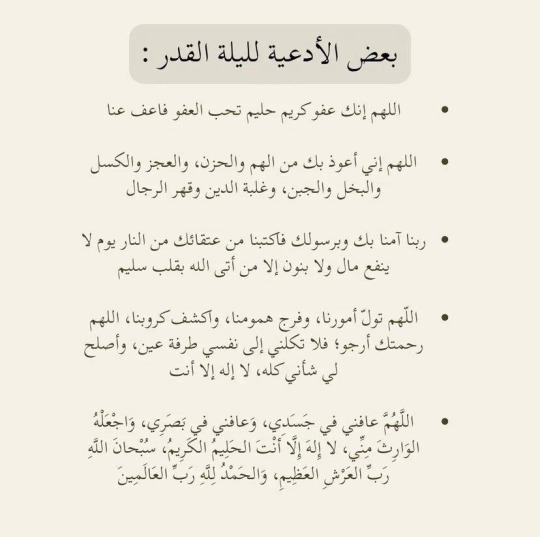 بعض الأدعية لليلة القدر :
• اللهم إنك عفو كريم حليم تحب العفو فاعف عنا
• اللهم إني أعوذ بك من الهم والحزن، والعجز والكسل
والبخل والجبن، وغلبة الدين وقهر الرجال
• ربنا آمنا بك وبرسولك فاكتبنا من عتقائك من النار يوم لا
ينفع مال ولا بنون إلا من أتى الله بقلب سليم
• اللّهم تولّ أمورنا، وفرج همومنا، واكشف كروبنا، اللهم
رحمتك أرجو؛ فلا تكلني إلى نفسي طرفة عين، وأصلح
لي شأني كله، لا إله إلا أنت
• اللَّهُمَّ عافني في جَسَدِي، وَعافني في بَصَرِي، وَاجْعَلْهُ
الوَارِثَ مِنِّي، لا إلهَ إِلَّا أنْتَ الحَلِيمُ الكَرِيمُ، سُبْحانَ اللَّهِ
رَبِّ العَرْشِ العَظِيمِ، وَالحَمْدُ لِلَّهِ رَبِّ العَالَمِينَ